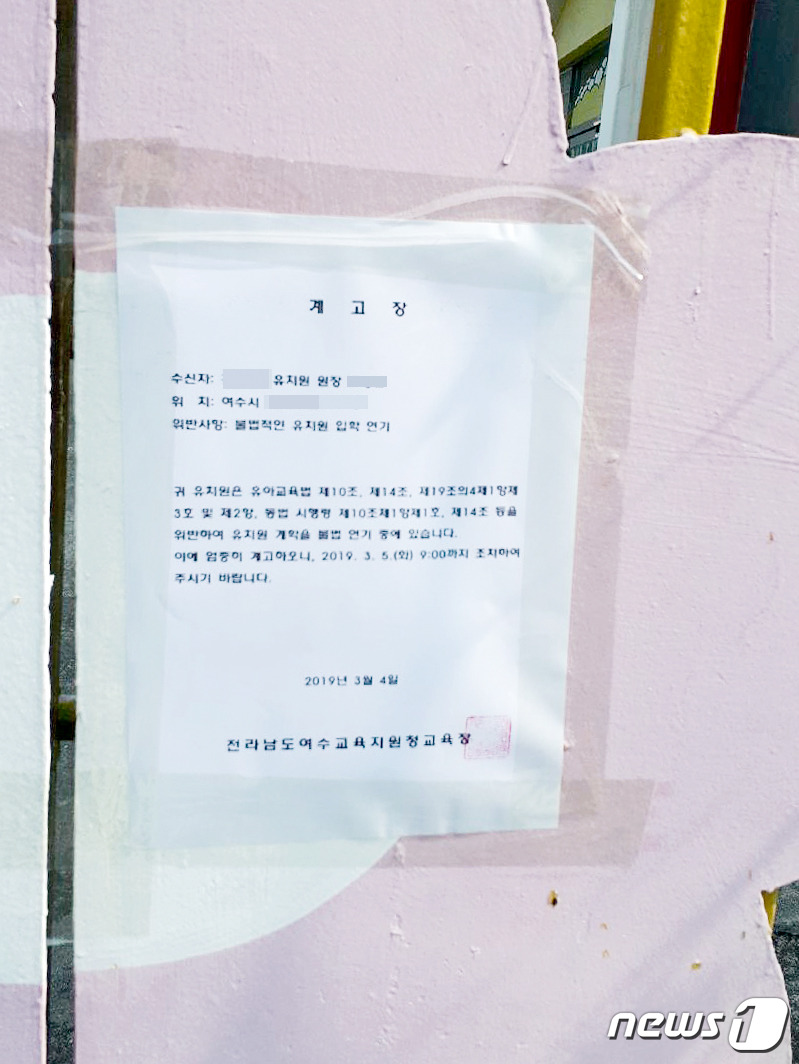 계 고 장
수신자: 유치원 원장
위 치: 여수시
위반사항: 불법적인 유치원 입학 연기
귀 유치원은 유아교육법 제10조, 제14조, 제19조의4제1항제
3호 및 제2항, 동법 시행령 제10조제1항제1호, 제14조 등을
위반하여 유치원 개학을 불법 연기 중에 있습니다.
이에 엄중히 계고하오니, 2019. 3. 5.(화) 9:00까지 조치하여
주시기 바랍니다.
2019년 3월 4일
전라남도여수교육지원청교육장
news1